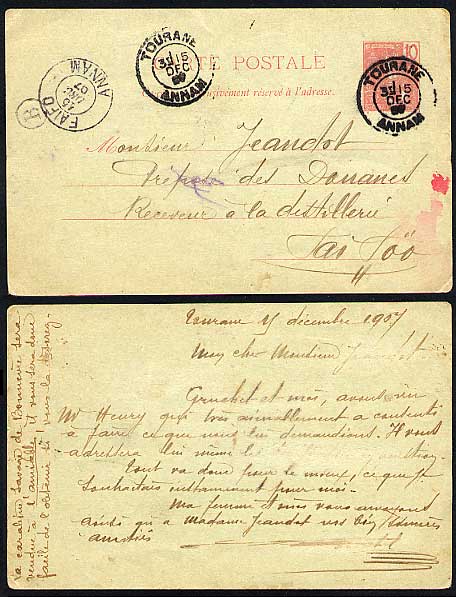 TOURANE
3E 15
DEC
07
ANNAM
TOURANE
3E 15
DEC
ANNAM
CARTE POSTALE
10
exclusivement réservé à l'adresse.
ANNAM
15
07
FAIFO
B
Monsieur Jeandot
Préposé des Douanes
Receveur à la distillerie
Tourane décembre 1907
Mon cher Monsieur Jeandot
Gruchet et moi, avons vu
Mr Henry qui très aimablement a consenti
à faire ce que nous lui demandions. Il vous
adressera lui même
Tout va donc pour le mieux, ce que je
souhaitais instamment pour moi.
Ma femme et moi vous envoyons
ainsi qu'à Madame Jeandot nos
amitiés
La carabine, savoir de Bonnevie sera
vendue à l'amiable, il vous sera donc
facile de l'obtenir si vous la désirez.